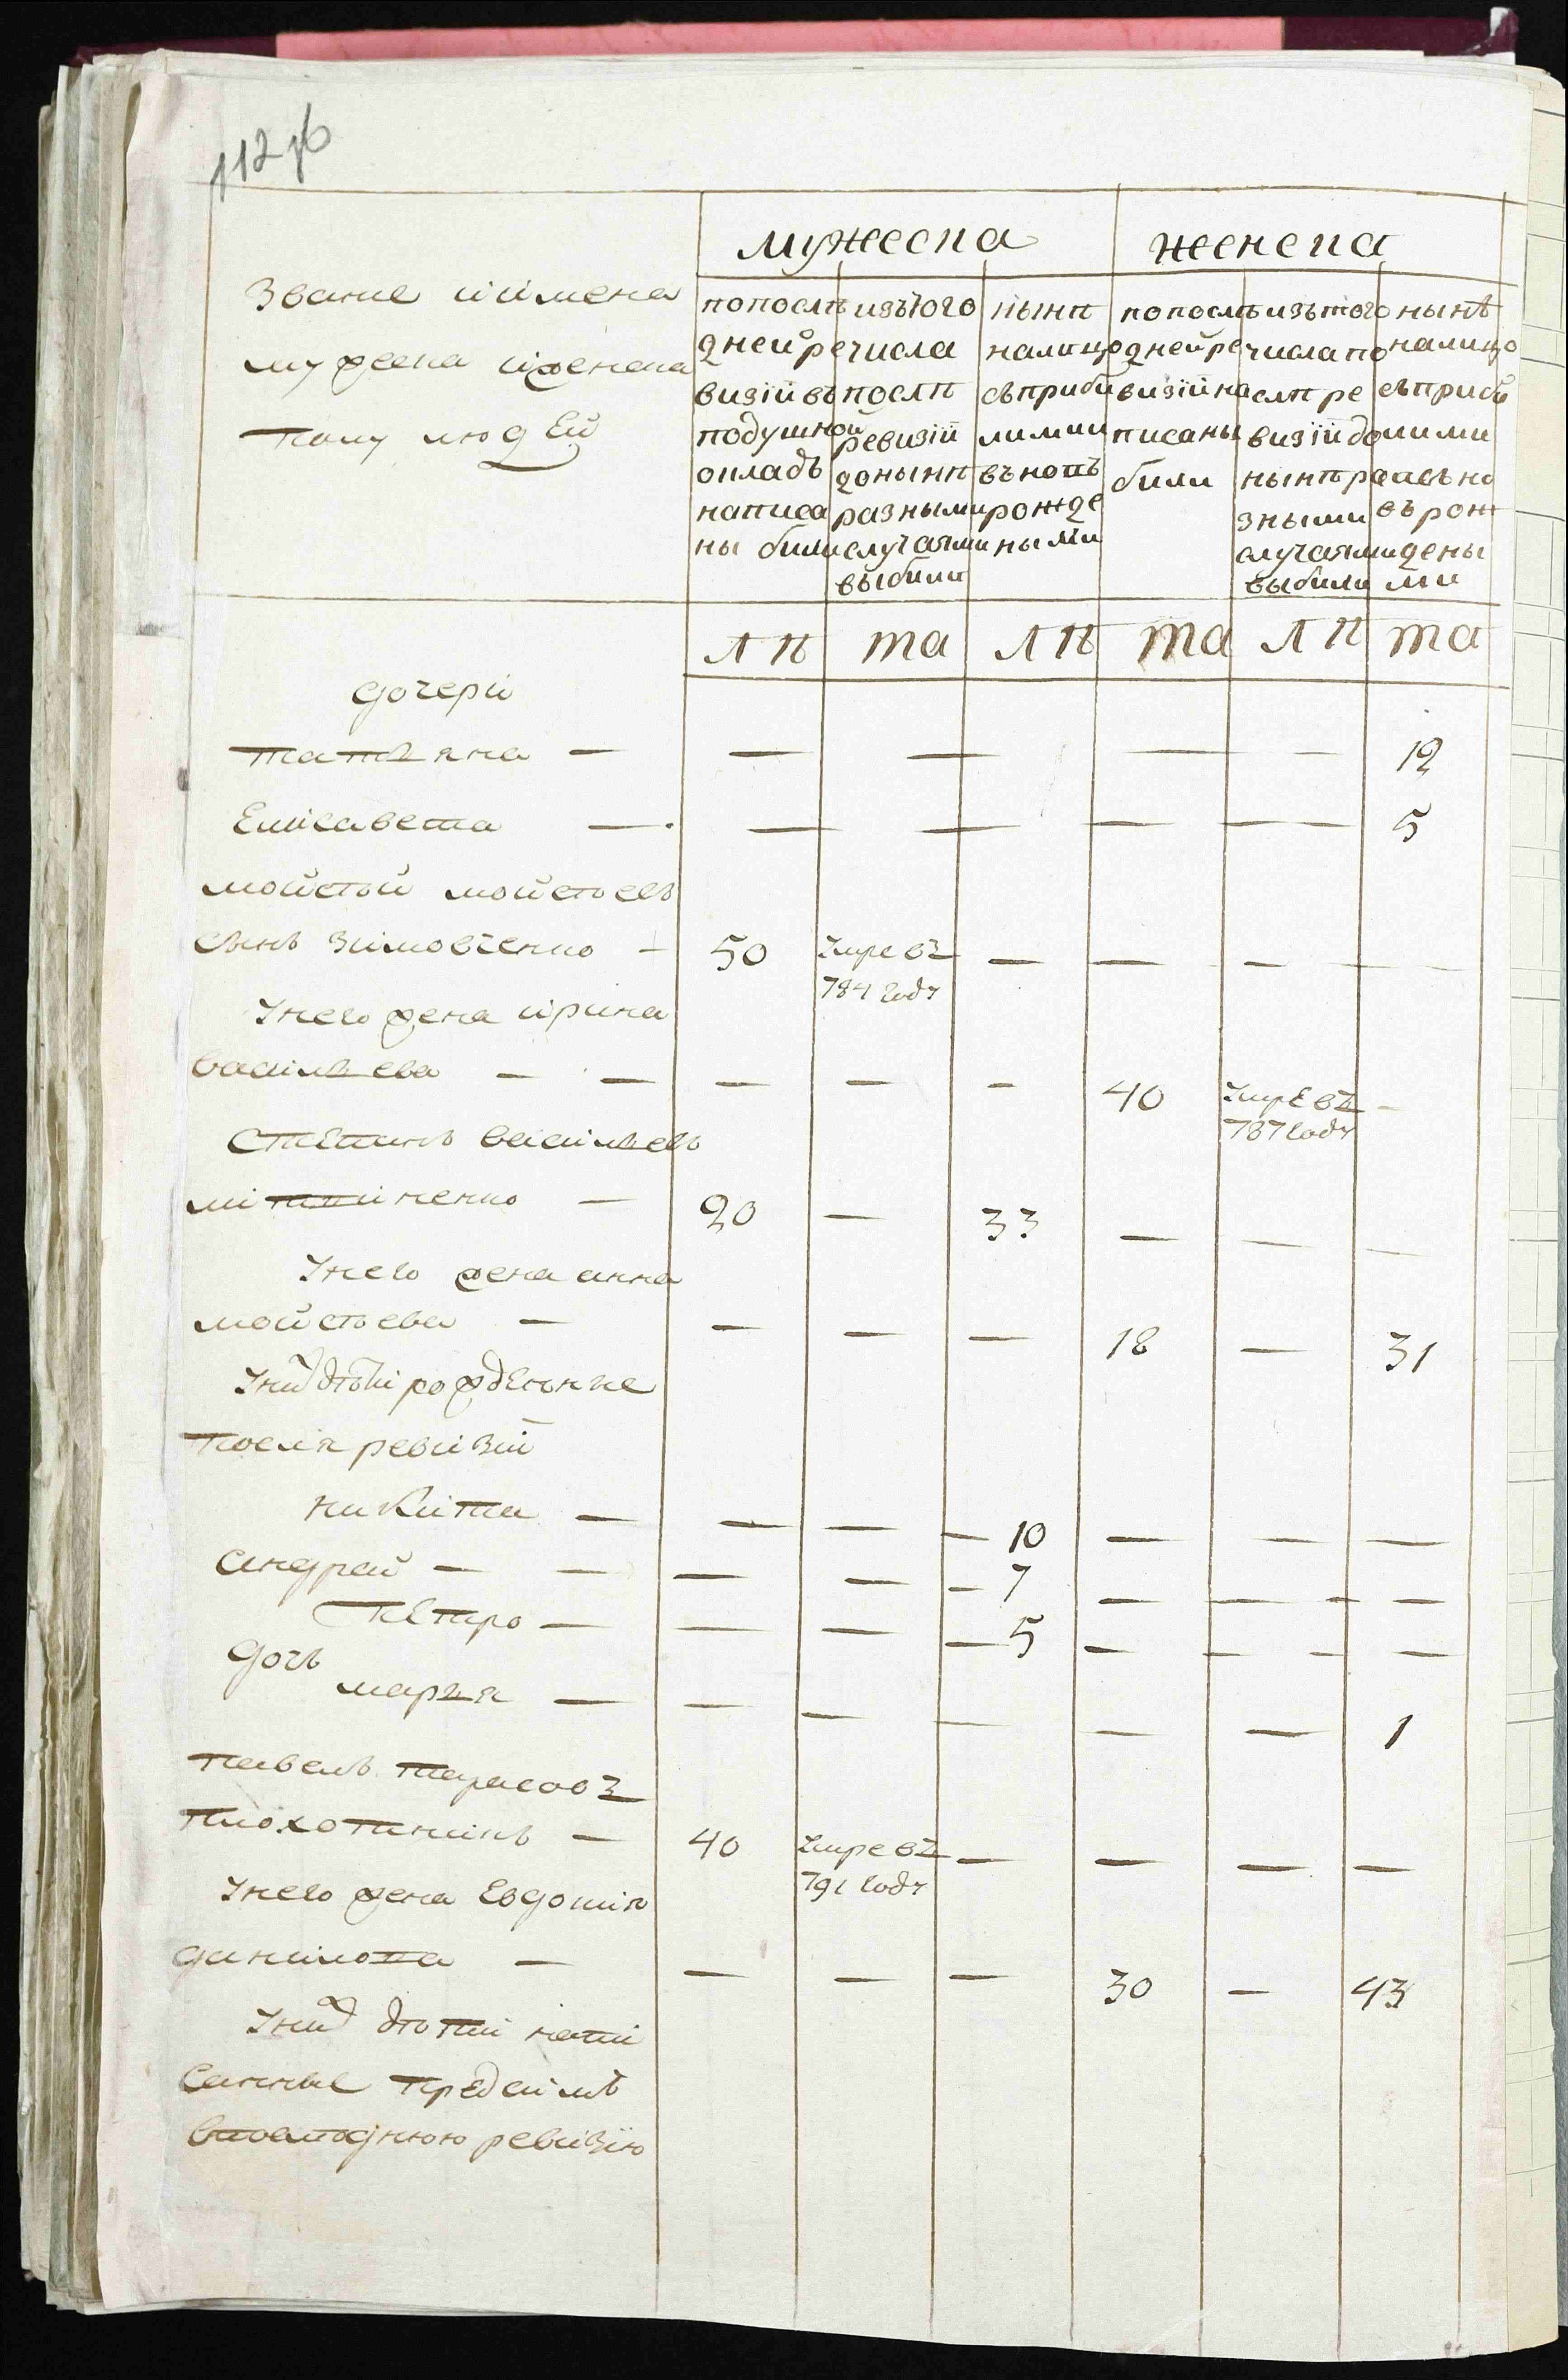 112 об
Звание и имена
мужеска и женска
полу людей
мужеска женска
по после
дней ре
визїи въ
подушной
окладъ
написа
ны были
изътого
числа
после
ревизїи
до ныне
разными
случаями
выбили
ныне
налицо
съ прибы
лими и
въ новъ
рожде
ными
по после
дней ре
визїи на
писаны
были
изъ того
числа по
сле ре
визїи до
ныне ра
зными
случаями
выбили
нынѣ
налицо
съ прибы
лими
и въ но
въ рож
дены
ми
лѣ та лѣ та лѣ та
дочери
татьяна — — — — — 12
Елисавета — — — — — 5
мойсѣй мойсѣевъ
сынъ Зимовченко — 50 Умре въ 784 году — — — —
У него жена ирина
василъева — — — — — 40 Умре въ 787 году —
Степанъ васильевъ
митииненко — 20 — 33 — — —
У него жена анна
мойсѣева — — — — 18 — 31
У них дѣти рожденние
после ревизїи
никита — — — 10 — — —
андрей — — — 7 — — —
петро — — — 5 — — —
дочь
марья — — — — — — 1
павелъ тарасовъ
плохотникъ — 40 Умре въ 791 году — — — —
У него жена Евдокия
данилова — — — — 30 — 43
У них дѣти напи
санные пред симъ
в последнюю ревизїю